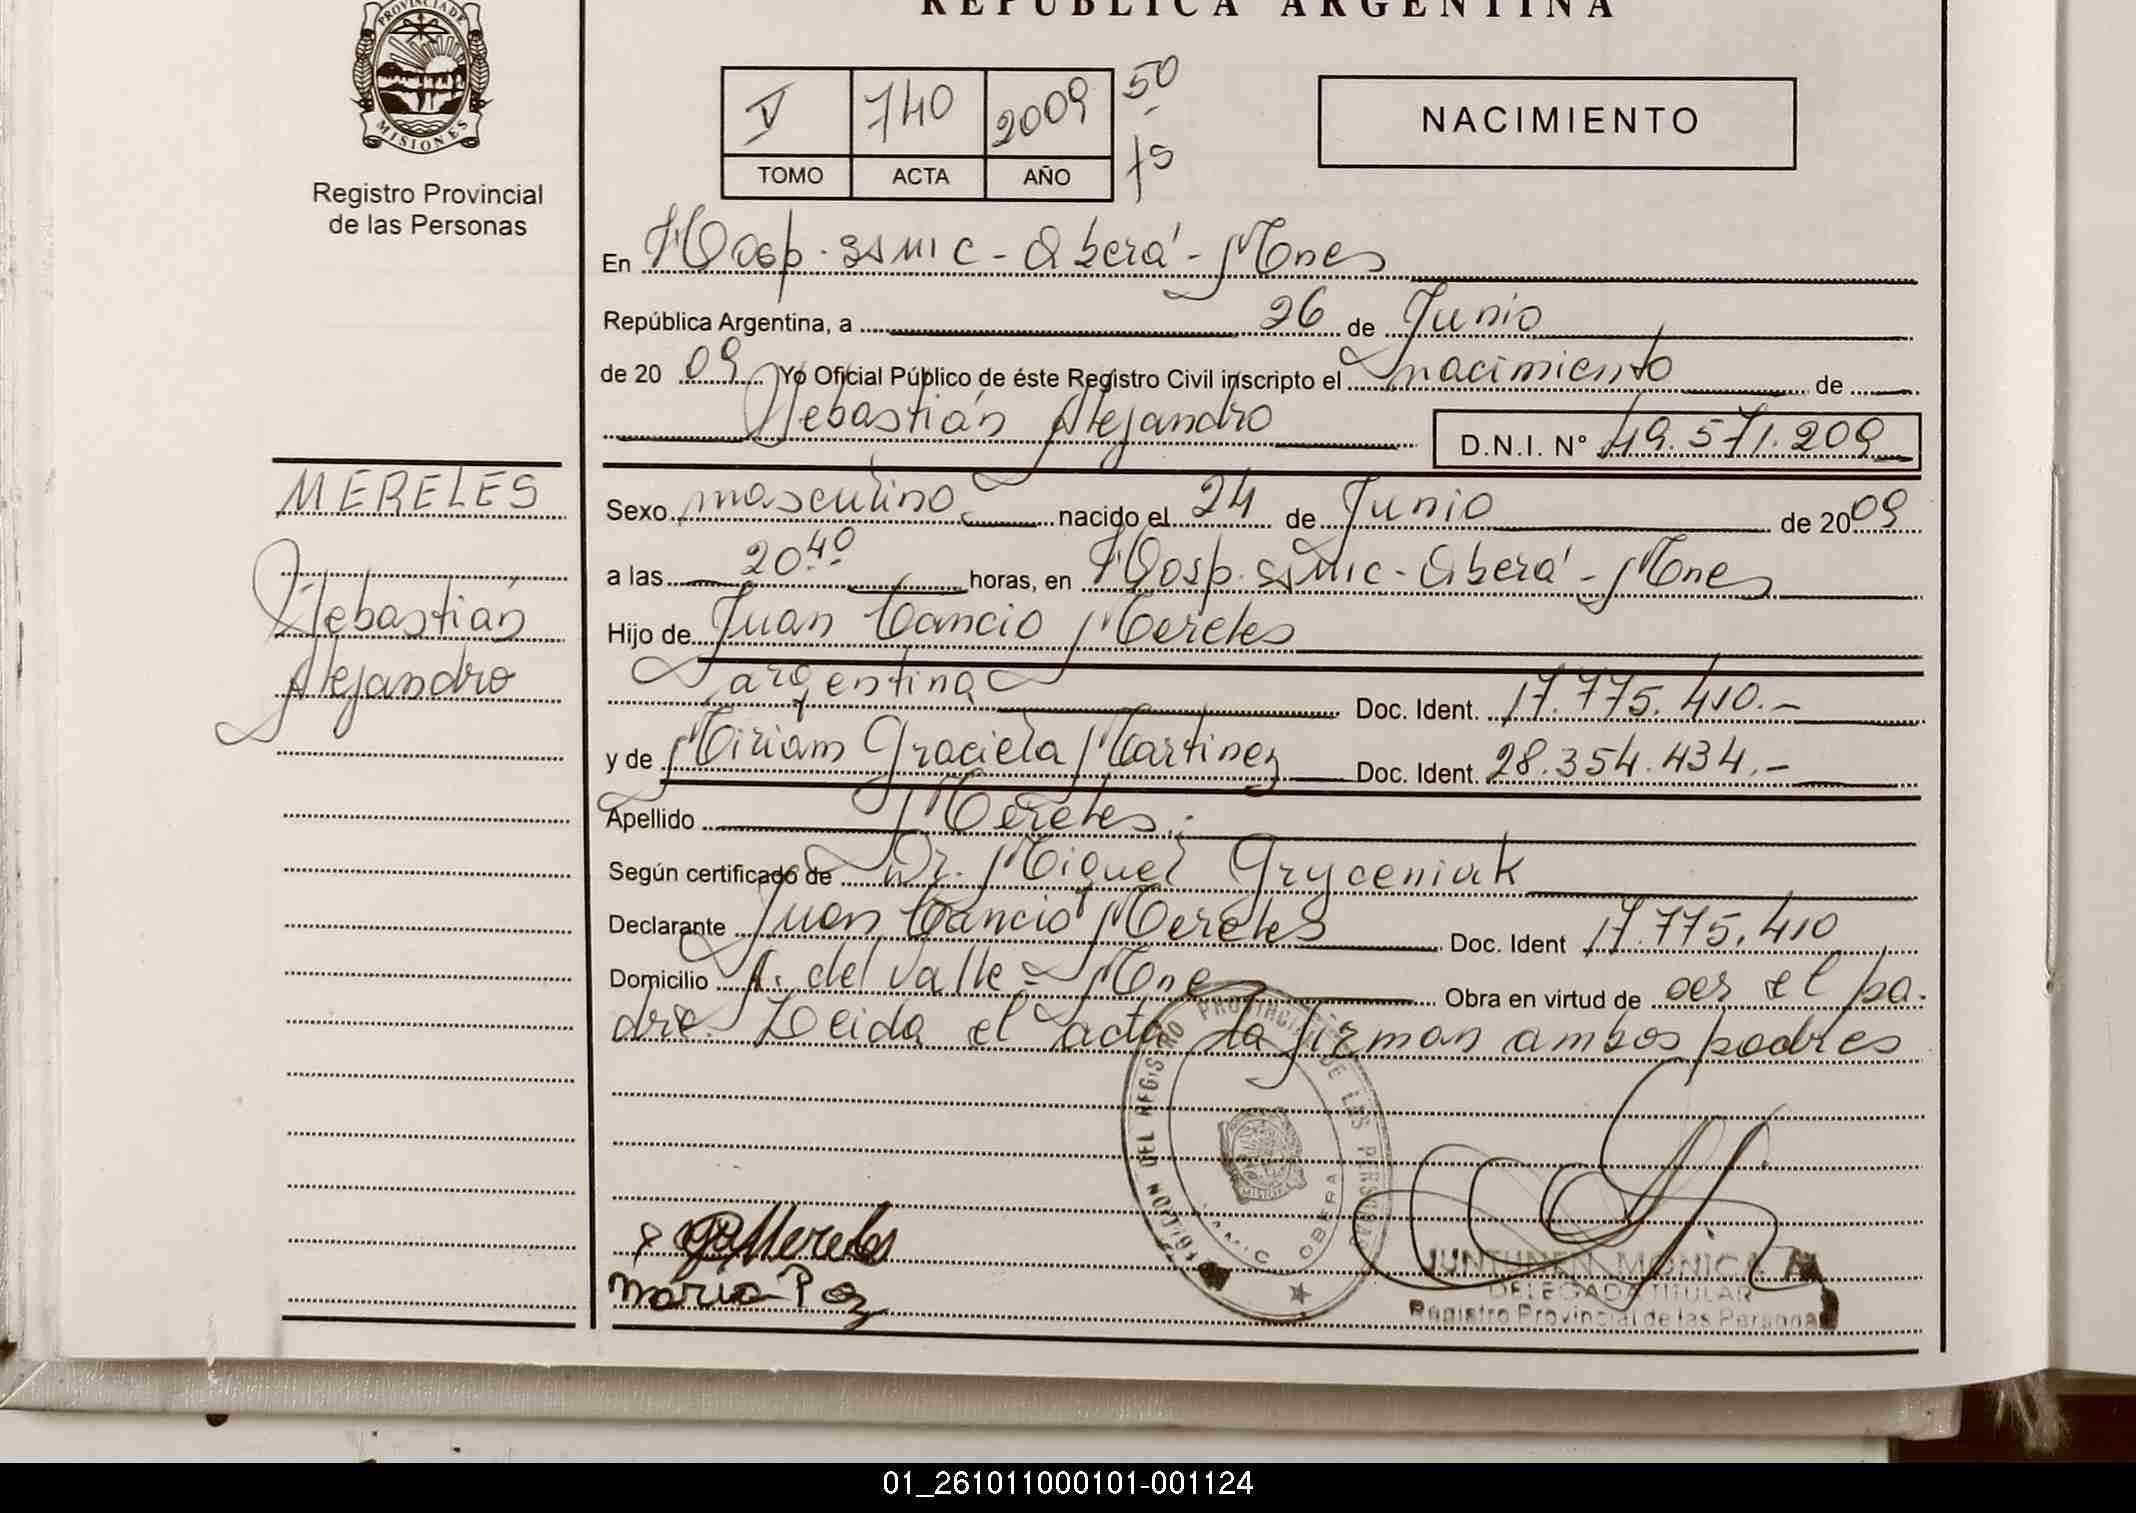 REPÚBLICA ARGENTINA
PROVINCIA DE
MISIONES
Registro Provincial
de las Personas
V 740 2009 50
TOMO ACTA AÑO 75
NACIMIENTO
En Hosp. SAMIC - Oberá - Mnes
República Argentina, a 26 de Junio
de 2009 Yo Oficial Público de éste Registro Civil inscripto el nacimiento de
Sebastián Alejandro D.N.I. N° 49.571.209
MERELES
Sebastián
Alejandro
Sexo masculino nacido el 24 de Junio de 2009
a las 20 40 horas, en Hosp. SAMIC - Oberá - Mnes
Hijo de Juan Cancio Mereles
argentina Doc. Ident. 17.775.410.-
y de Miriam Graciela Martinez Doc. Ident. 28.354.434.-
Apellido Mereles.-
Según certificado de Dr. Miguel Gryceniuk
Declarante Juan Cancio Mereles Doc. Ident 17.775.410
Domicilio A. del Valle - Mnes Obra en virtud de ser el pa-
dre. Leida el acta la firman ambos padres
DEL REGISTRO PROVINCIAL DE LAS PERSONAS
OBERA
MISIONES
Mereles
JUNTUNEN MONICA
DELEGADA TITULAR
Registro Provincial de las Personas
01_261011000101-001124